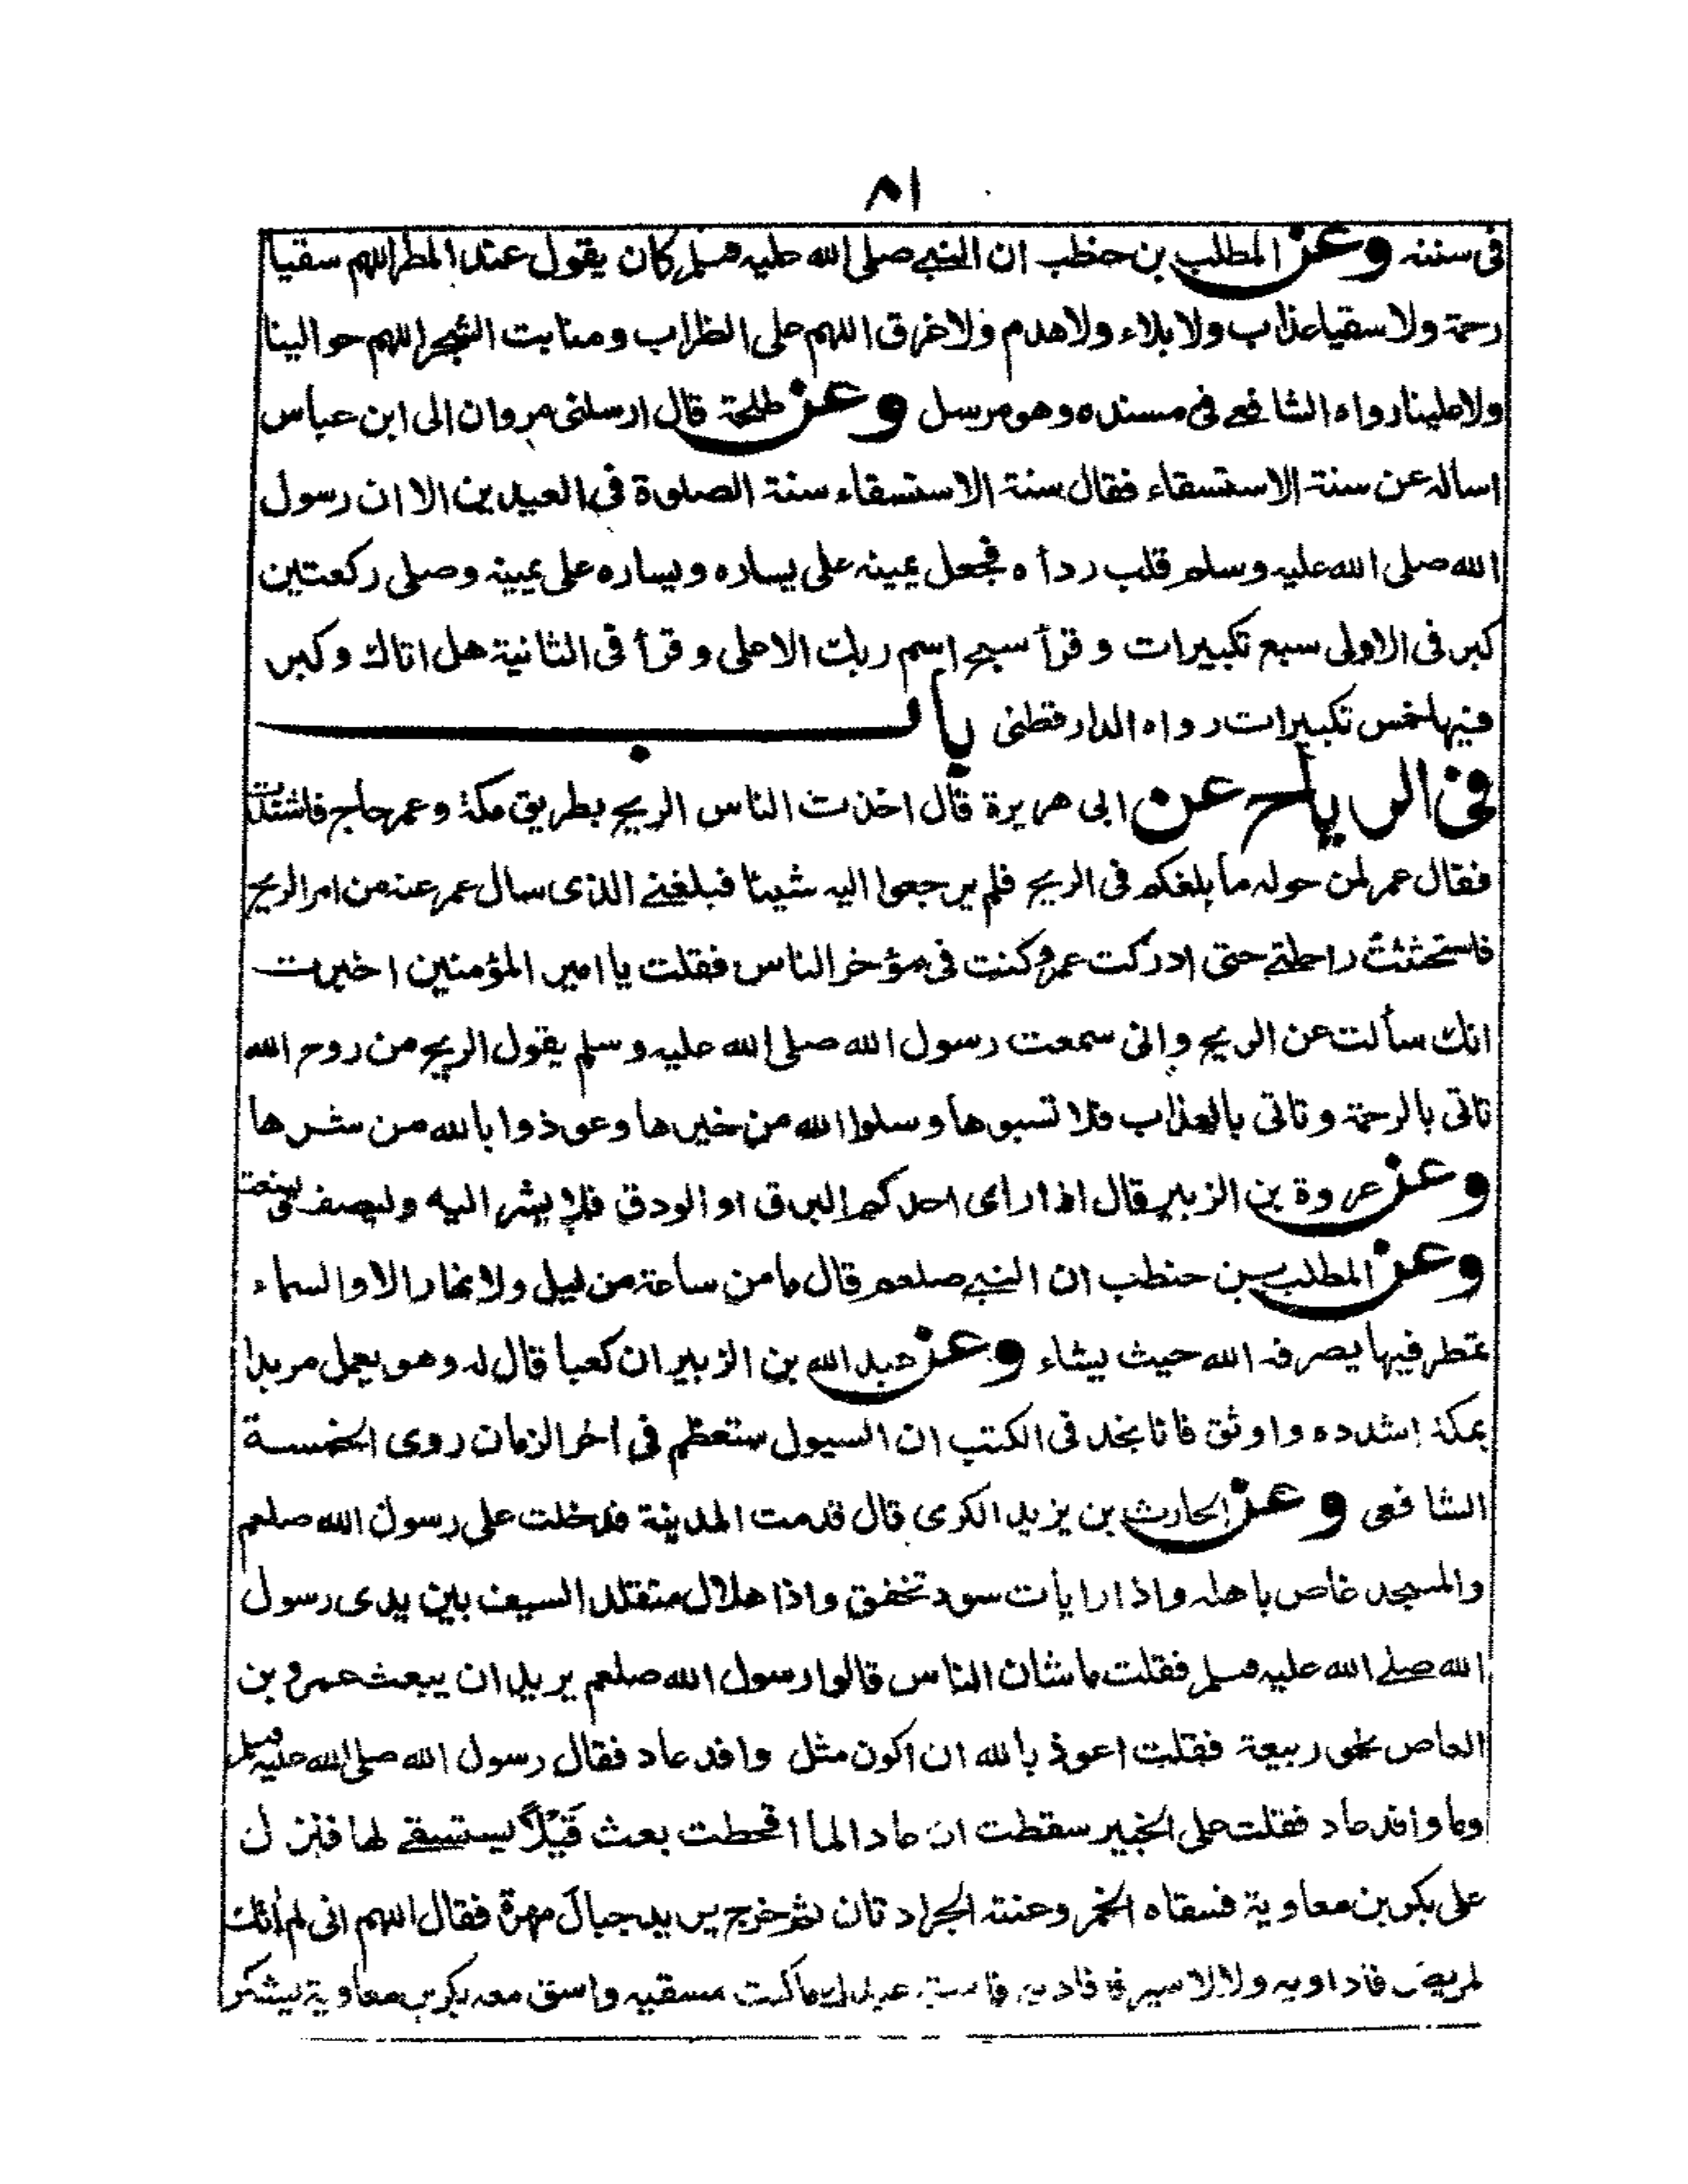 ٨١
فى سننه وعن المطلب بن حنطب ان النبي صلى الله عليه وسلم كان يقول عند المطر اللهم سقيا
رحمة ولا سقيا عذاب ولا بلاء ولا هدم ولا غرق اللهم على الظراب ومنابت الشجر اللهم حوالينا
ولا علينا رواه الشافعي فى مسنده وهو مرسل وعن طلحة قال ارسلنى مروان الى ابن عباس
اساله عن سنة الاستسقاء فقال سنة الاستسقاء سنة الصلوة فى العيدين الا ان رسول
الله صلى الله عليه وسلم قلب رداٗه فجعل يمينه على يساره ويساره على يمينه وصلى ركعتين
كبر فى الاولى سبع تكبيرات وقرأ سبح اسم ربك الاعلى وقرأ فى الثانية هل اتاك وكبر
فيها خمس تكبيرات رواه الدارقطنى باب
فى الرياح عن ابى هريرة قال اخذت الناس الريح بطريق مكة وعمر حاج فاشتدت
فقال عمر لمن حوله ما بلغكم فى الريح فلم يرجعوا اليه شيئا فبلغنے الذى سال عمر عنه من امر الريح
فاستحثثت راحلتے حتى ادركت عمر وكنت فى مؤخر الناس فقلت يا امير المؤمنين اخبرت
انك سألت عن الريح وانى سمعت رسول الله صلى الله عليه وسلم يقول الريح من روح الله
تاتى بالرحمة وتاتى بالعذاب فلا تسبوها وسلوا الله من خيرها وعوذوا بالله من شرها
وعن عروة بن الزبير قال اذا راى احدكم البرق او الودق فلا يشر اليه وليصف ولينعت
وعن المطلب بن حنطب ان النبے صلعم قال ما من ساعة من ليل ولا نهار الا والسماء
تمطر فيها يصرفه الله حيث يشاء وعن عبد الله بن الزبير ان كعبا قال له وهو يعمل مربدا
بمكة اشدده واوثق فانا نجد فى الكتب ان السيول ستعظم فى اخر الزمان روى الخمسة
الشافعى وعن الحارث بن يزيد البكرى قال قدمت المدينة فدخلت على رسول الله صلعم
والمسجد غاص باهله واذا رايات سود تخفق واذا هلال متقلد السيف بين يدى رسول
الله صلے الله عليه وسلم فقلت ما شان الناس قالوا رسول الله صلعم يريد ان يبعث عمرو بن
العاص نحو ربيعة فقلت اعوذ بالله ان اكون مثل وافد عاد فقال رسول الله صلى الله عليه وسلم
وما وافد عاد فقلت على الخبير سقطت ان عادا لما اقحطت بعث قَيْلًا يستسقے لها فنزل
على بكر بن معاوية فسقاه الخمر وغنته الجرادتان ثم خرج يريد جبال مهرة فقال اللهم انى لم أتك
لمريض فاداويه ولا لاسير فافاديه فاسق عبدك ما كنت مسقيه واسق معه بكر بن معاوية يشكر